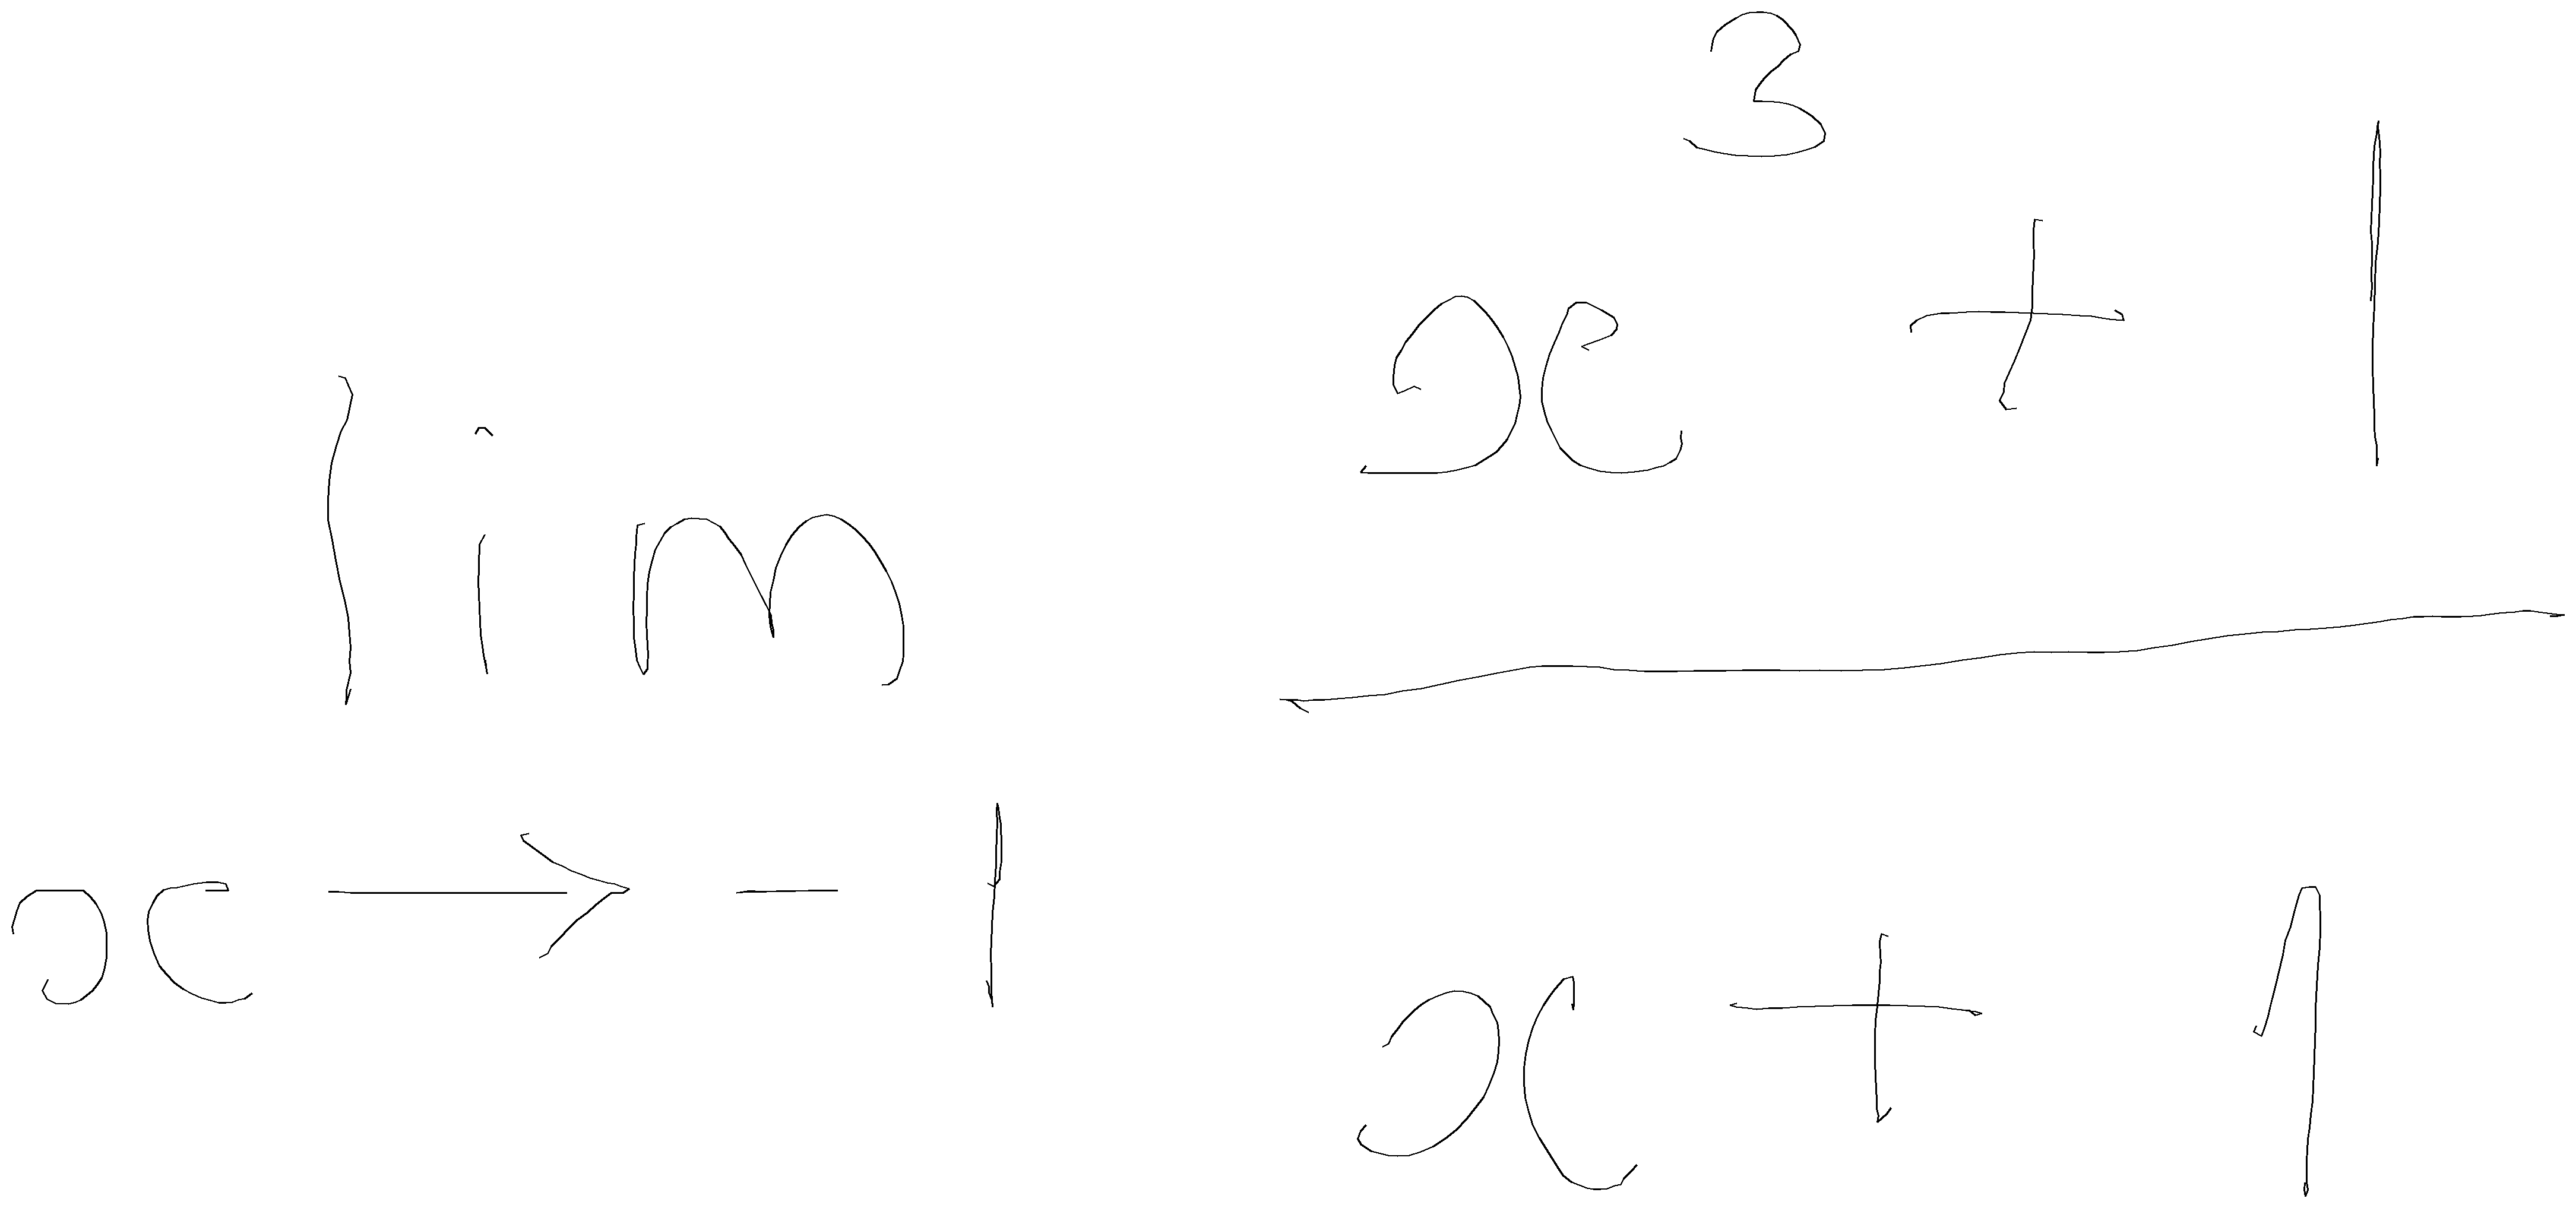 \lim_{x \to -1} \frac{x^3 + 1}{x + 1}